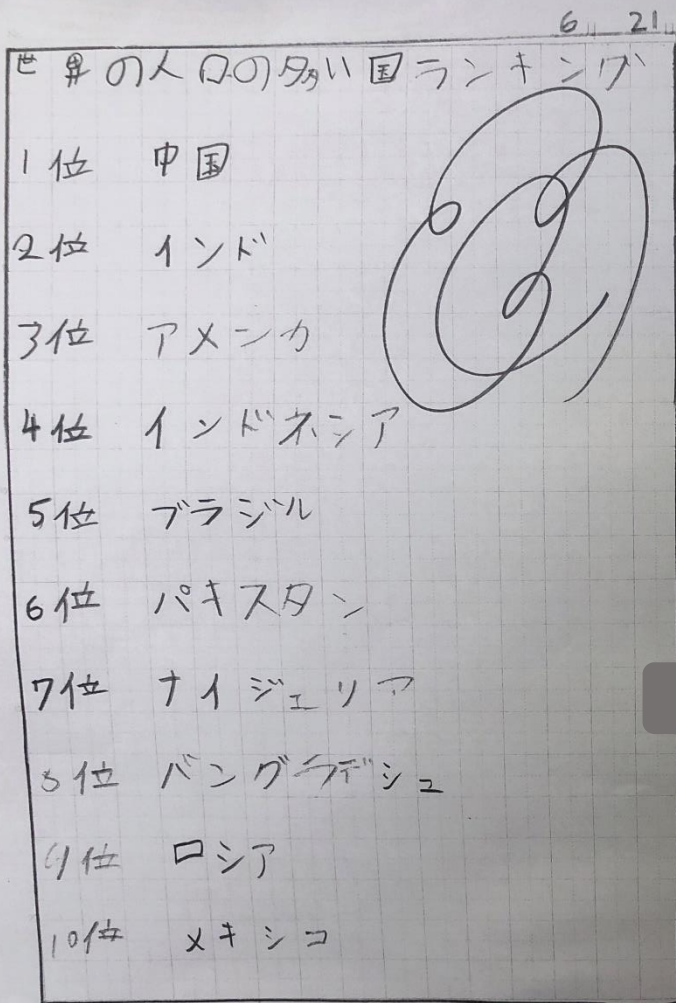 6 21
世界の人口の多い国ランキング
1位 中国
2位 インド
3位 アメンカ
4位 インドネシア
5位 ブラジル
6位 パキスタン
7位 ナイジェリア
8位 バングラデシュ
9位 ロシア
10位 メキシコ